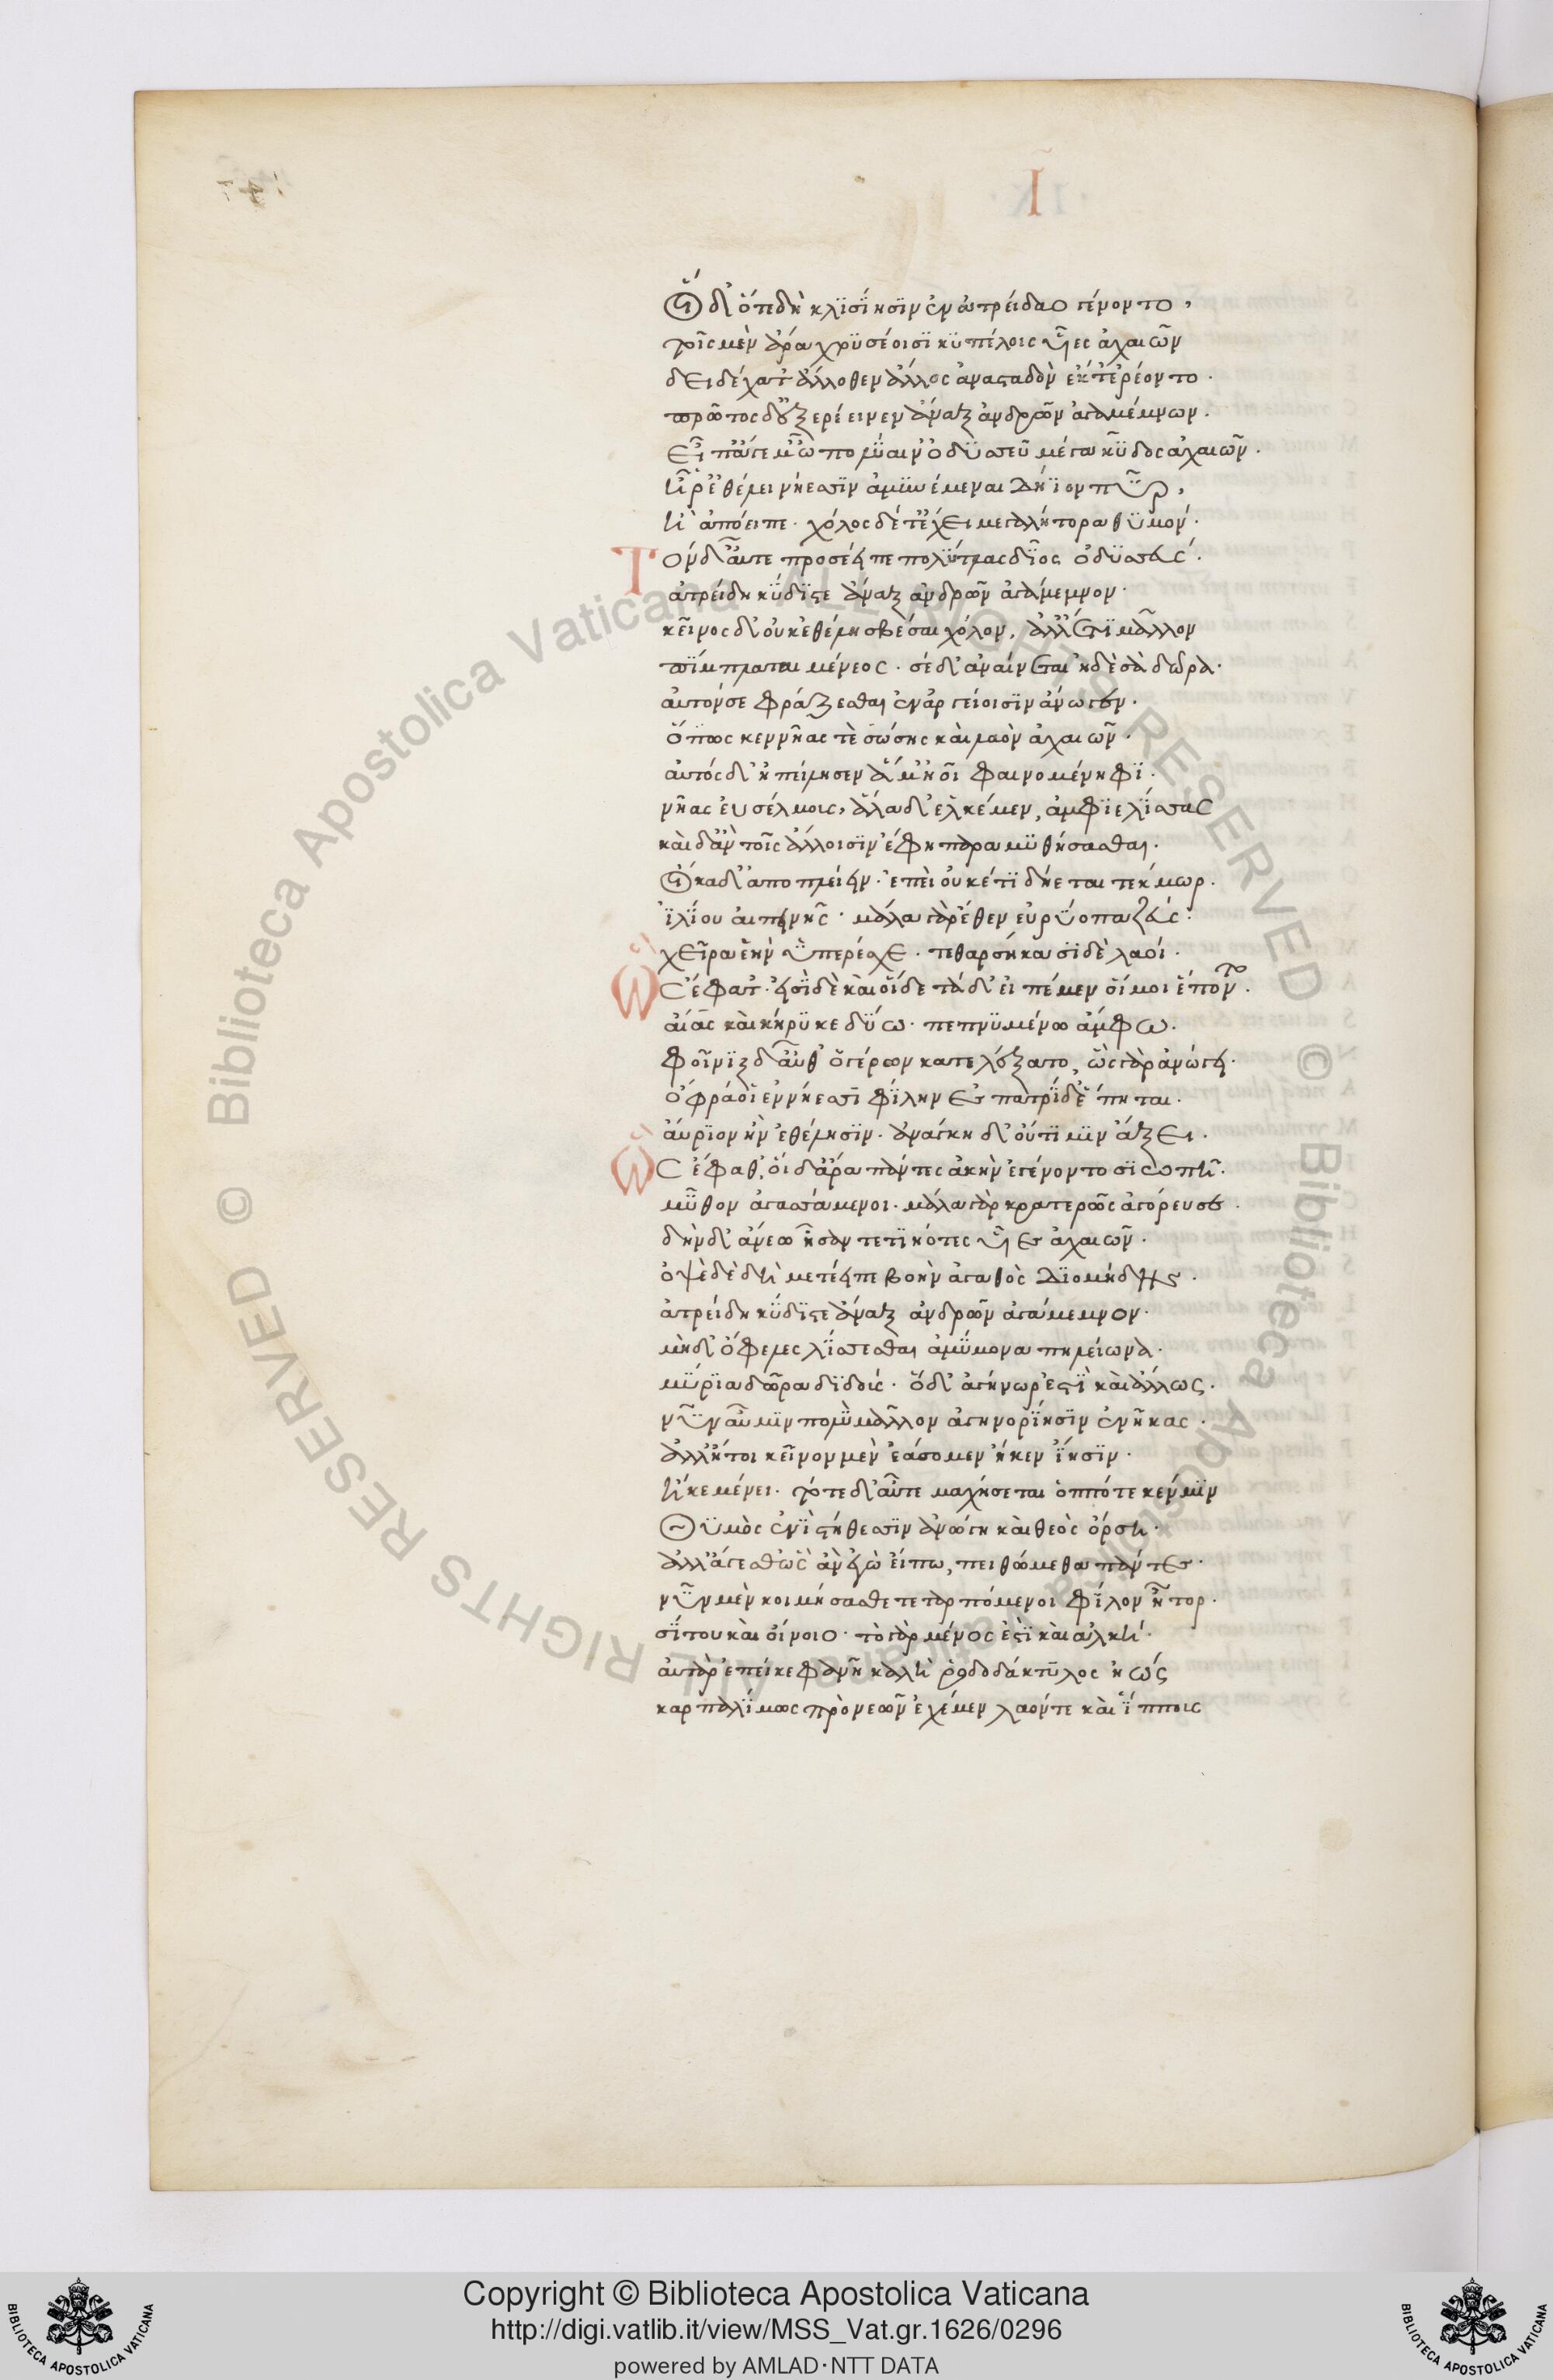 Ι
Οἱ δ᾽ ὅτε δὴ κλισίησιν ἐν ἀτρείδαο γένοντο,
τοῖς μὲν ἄρα χρυσέοισι κυπέλοις υἷες ἀχαιῶν
δειδέχατ᾽ ἄλλοθεν ἄλλος ἀνασταδὸν ἔκ τ᾽ ἐρέοντο·
πρῶτος δ᾽ ἐξερέεινεν ἄναξ ἀνδρῶν ἀγαμέμνων·
εἴπ᾽ ἄγε μ᾽ ὦ πολύαιν᾽ ὀδυσσεῦ μέγα κῦδος ἀχαιῶν·
ἤ ῥ᾽ ἐθέλει νήεσσιν ἀμυνέμεναι δήϊον πῦρ,
ἦ ἀπόειπε· χόλος δέ τ᾽ ἔχει μεγαλήτορα θυμόν·
Τὸν δ᾽ αὖτε προσέειπε πολύτλας δῖος ὀδυσσεύς·
ἀτρείδη κύδιστε ἄναξ ἀνδρῶν ἀγάμεμνον·
κεῖνος δ᾽ οὐκ ἐθέλη σβέσαι χόλον, ἀλλ᾽ ἔτι μᾶλλον
πίμπλαται μένεος· σέ δ᾽ ἀναίνεται ἠδὲ σὰ δῶρα·
αὐτόν σε φράζεσθαι ἐν ἀργείοισιν ἄνωγεν·
ὅππως κεν νῆας τὲ σώσης καὶ λαὸν ἀχαιῶν·
αὐτὸς δ᾽ ἠπείλησεν ἅμ᾽ ἠοῖ φαινομένηφι·
νῆας ἐυσέλμοις, ἅλαδ᾽ ἑλκέμεν, ἀμφιελίσσας
καὶ δ᾽ ἂν τοῖς ἄλλοισιν ἔφη παραμυθήσασθαι·
Οἴκαδ᾽ ἀποπλείειν· ἐπεὶ οὐκέτι δήεται τεκμωρ·
ἰλίου αἰπεινῆς· μάλα γάρ ἑθεν εὐρύοπα ζεύς·
χεῖρα ἑὴν ὑπερέσχε· τεθαρσήκασι δὲ λαοί·
Ὣς ἔφατ᾽· εἰσὶ δὲ καὶ οἵδε τάδ᾽ εἰπέμεν οἵ μοι ἕποντο·
αἴας καὶ κήρυκε δύω· πεπνυμένω ἄμφω·
Φοῖνιξ δ᾽ αὖθ᾽ ὁ γέρων κατελέξατο, ὣς γὰρ ἀνώγει·
ὄφρά οἱ ἐν νήεσσι φίλην ἐς πατρίδ᾽ ἕπηται·
αὔριον ἢν ἐθέλησιν· ἀνάγκη δ᾽ οὔτι μιν ἄξει·
Ὣς ἔφαθ᾽, οἱ δ᾽ ἄρα πάντες ἀκὴν ἐγένοντο σιωπῆ·
μῦθον ἀγασσάμενοι· μάλα γὰρ κρατερῶς ἀγόρευσε·
δὴν δ᾽ ἄνεω ἦσαν τετιηότες υἷες ἀχαιῶν·
ὀψὲ δὲ δὴ μετέειπε βοὴν ἀγαθὸς διομήδης·
ἀτρείδη κύδιστε ἄναξ ἀνδρῶν ἀγάμεμνον·
μὴ δ᾽ ὄφελες λίσσεσθαι ἀμύμονα πηλείωνα·
μύρια δῶρα διδοίς· ὅδ᾽ ἀγήνωρ ἐστὶ καὶ ἄλλως·
νῦν αὖ μιν πολὺ μᾶλλον ἀγηνορίησιν ἐνῆκας·
ἀλλ᾽ ἤτοι κεῖνον μὲν ἐάσομεν ἤ κεν ἴησιν·
ἤ κε μένει· τότε δ᾽ αὖτε μαχήσεται ὁππότε κέν μιν
Θυμὸς ἐνὶ στήθεσσιν ἀνώγη καὶ θεὸς ὄρση·
ἀλλ᾽ ἄγεθ᾽ ὡς ἂν ἐγὼ εἴπω, πειθώμεθα πάντες·
νῦν μὲν κοιμήσασθε τεταρπόμενοι φίλον ἦτορ·
σίτου καὶ οἴνοιο· τὸ γὰρ μένος ἐστὶ καὶ ἀλκή·
αὐτὰρ ἐπεί κε φανῆ καλὴ ῥοδοδάκτυλος ἠώς
καρπαλίμως πρὸ νεῶν ἐχέμεν λαόν τε καὶ ἵπποις
© Biblioteca Apostolica Vaticana ALL RIGHTS RESERVED
© Biblioteca Apostolica Vaticana ALL RIGHTS RESERVED
Copyright © Biblioteca Apostolica Vaticana
http://digi.vatlib.it/view/MSS_Vat.gr.1626/0296
powered by AMLAD·NTT DATA
BIBLIOTECA APOSTOLICA VATICANA
BIBLIOTECA APOSTOLICA VATICANA